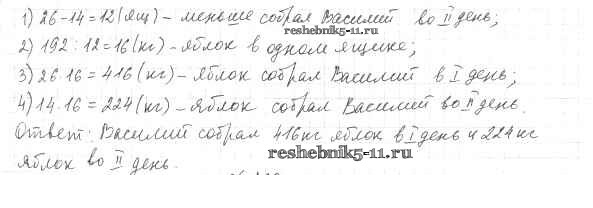 1) 26-14=12(ящ) - меньше собрал Василий во II день;
2) 192:12=16(кг) - яблок в одном ящике;
reshebnik5-11.ru
3) 26·16=416(кг) - яблок собрал Василий в I день;
4) 14·16=224(кг) - яблок собрал Василий во II день.
Ответ: Василий собрал 416кг яблок в I день и 224кг
яблок во II день.
reshebnik5-11.ru